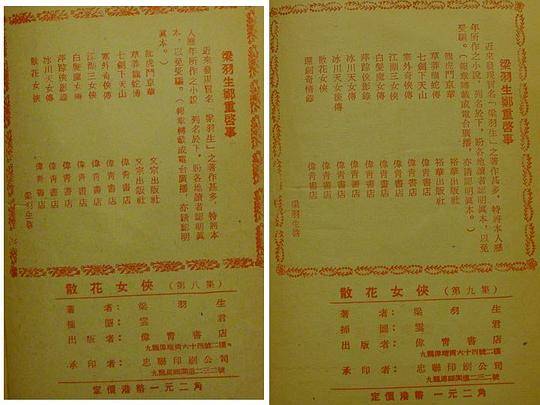 梁羽生鄭重啓事
近來發現冒名「梁羽生」之著作甚多，特將本
人歷年所作之小說，列名於下，盼各地讀者認明眞
本，以免受騙。（報章轉載或電台廣播，亦請認明
眞本。）
龍虎鬥京華 文宗出版社
草莽龍蛇傳 文宗出版社
七劍下天山 偉青書店
塞外奇俠傳 偉青書店
江湖三女俠 偉青書店
白髮魔女傳 偉青書店
萍踪俠影錄 偉青書店
冰川天女傳 偉青書店
散花女俠 偉青書店
梁羽生啓
散花女俠（第八集）
著者：梁羽生
插圖：雲君
出版者：偉青書店
九龍偉晴街六十四號二樓
承印者：忠聯印刷公司
定價港幣一元二角
梁羽生鄭重啓事
近來發現冒名「梁羽生」之著作甚多，特將本人歷
年所作之小說，列名於下，盼各地讀者認明眞本，以免
受騙。（報章轉載或電台廣播，亦請認明眞本。）
龍虎鬥京華 裕華出版社
草莽龍蛇傳 裕華出版社
七劍下天山 偉青書店
江湖三女俠 偉青書店
白髮魔女傳 偉青書店
萍踪俠影錄 偉青書店
冰川天女傳 偉青書店
散花女俠 偉青書店
還劍奇情錄 偉青書店
梁羽生啓
散花女俠（第九集）
著者：梁羽生
插圖：雲君
出版者：偉青書店
九龍偉晴街六十四號二樓
承印者：忠聯印刷公司
定價港幣一元二角